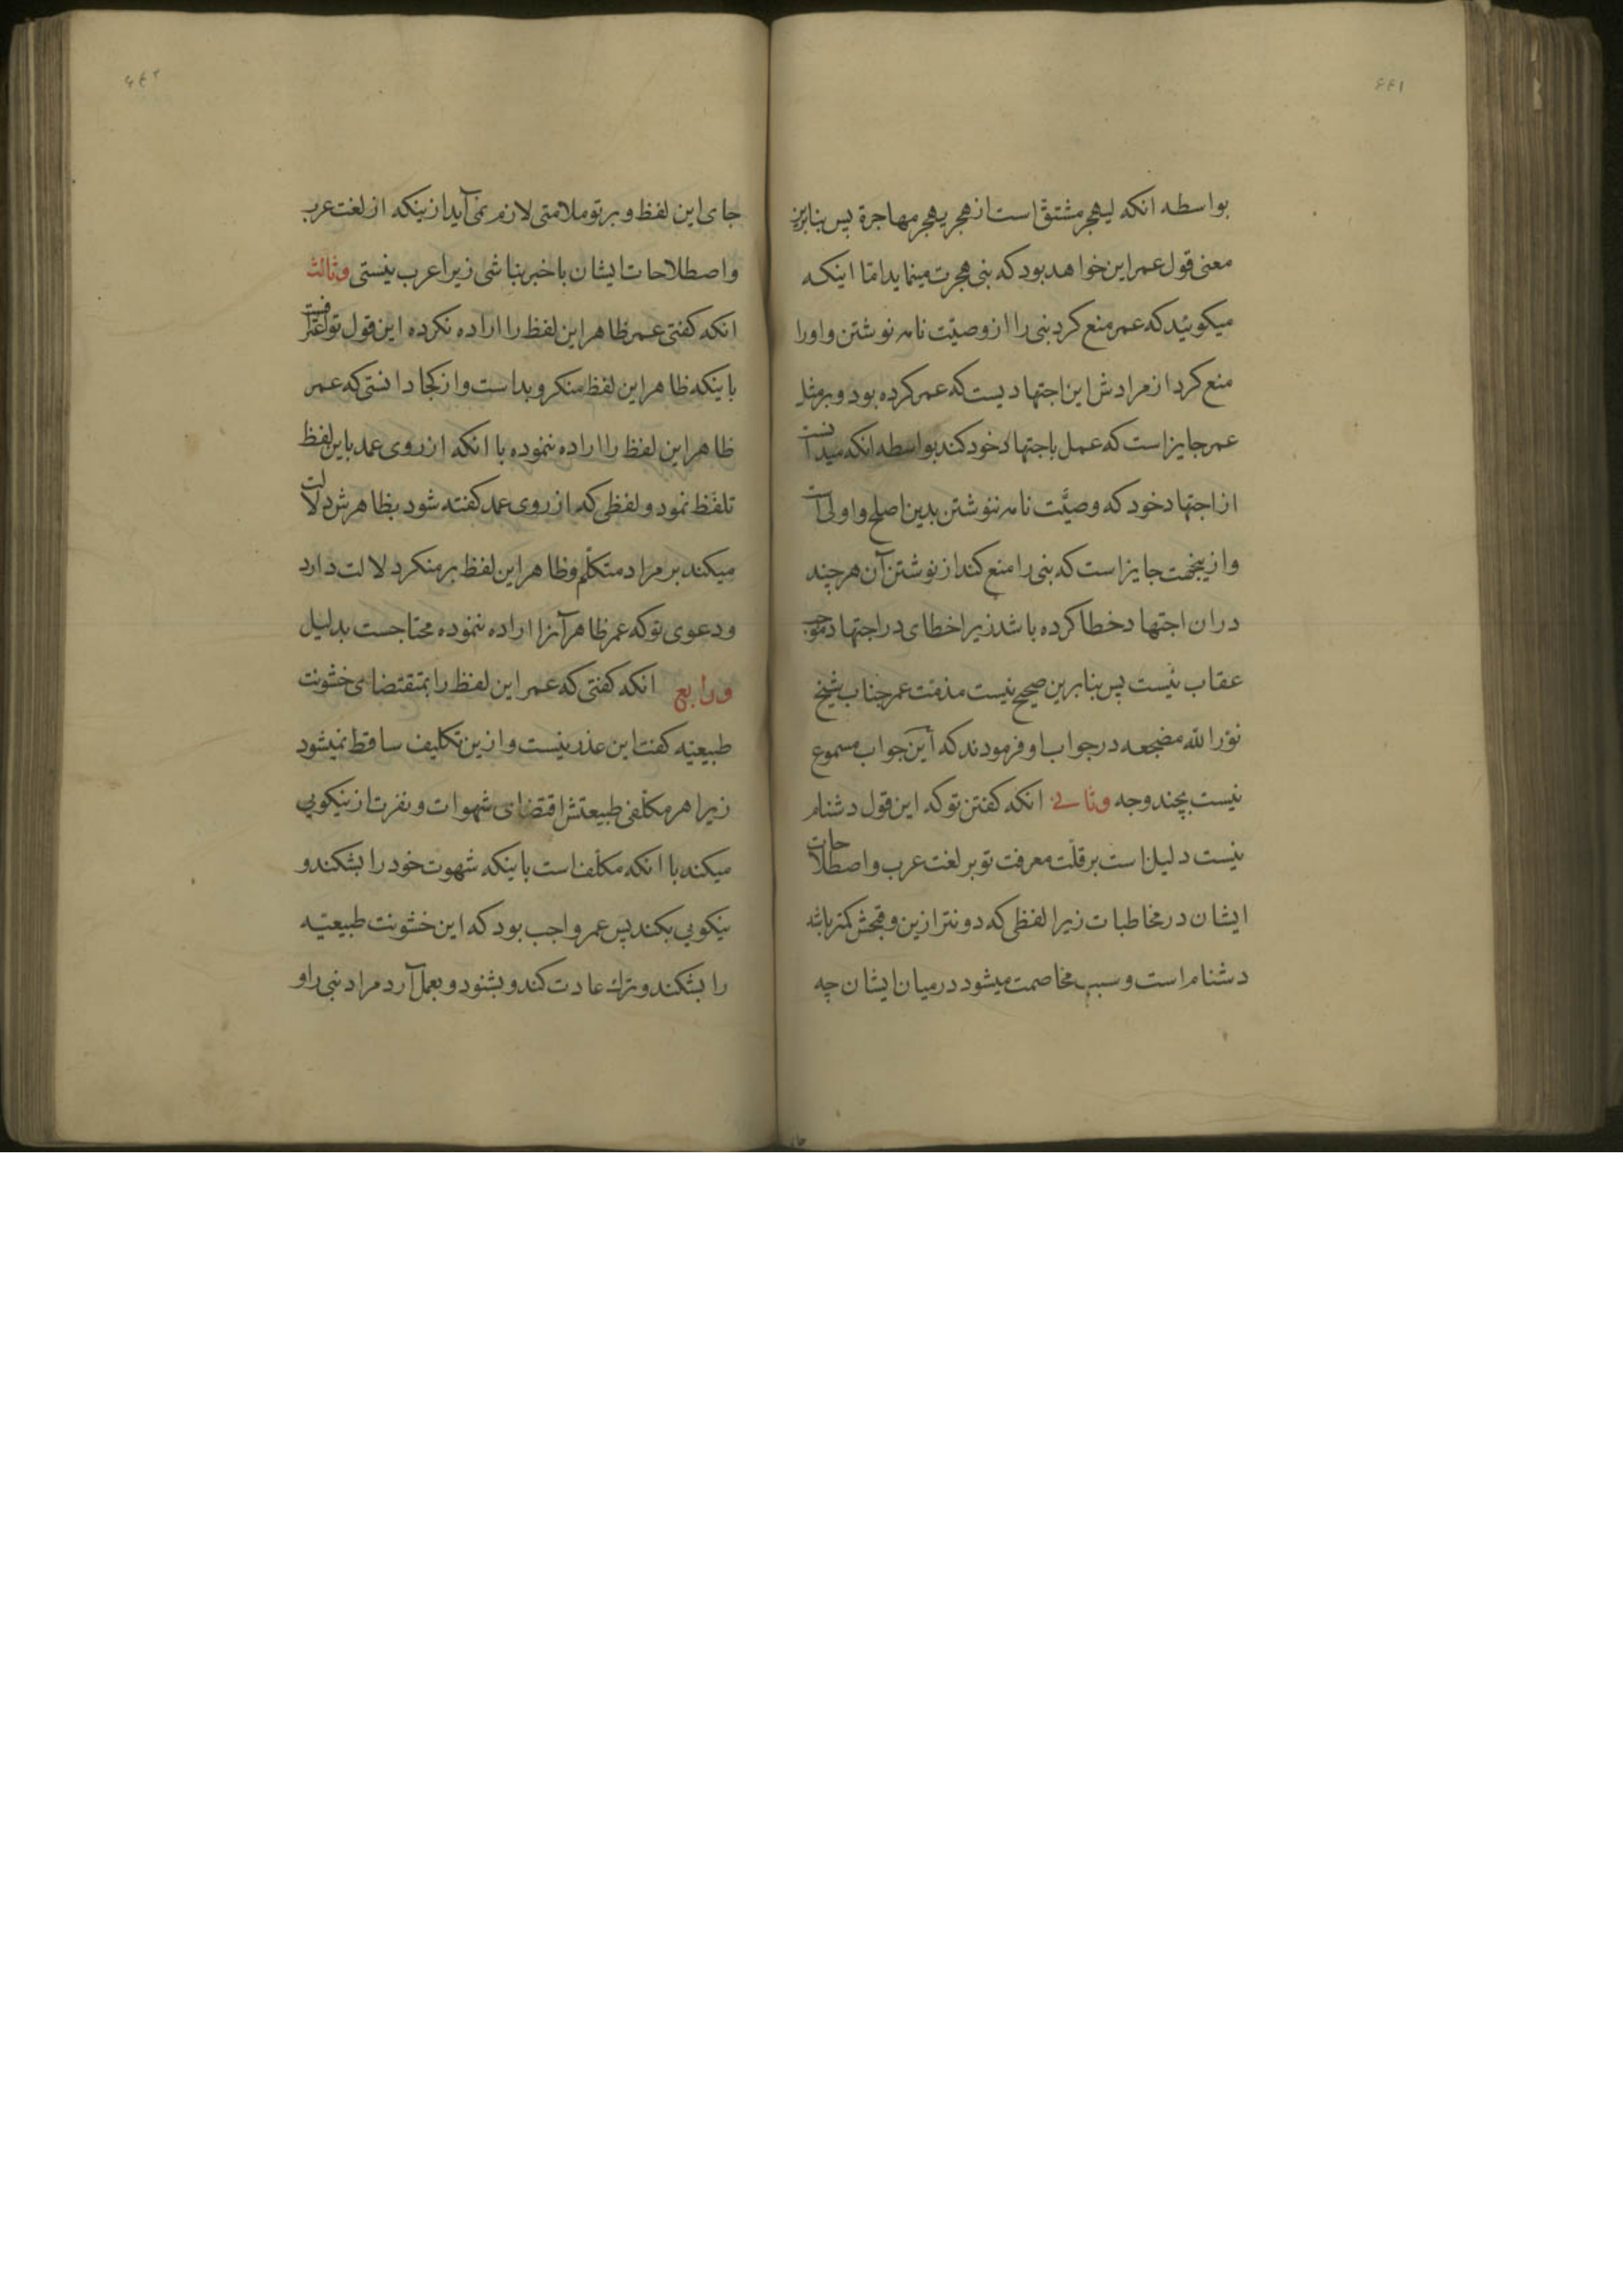 ٤٤١
بواسطه انکه لیهجر مشتق است از هجر یهجر مهاجرة پس بنابرین
معنی قول عمر این خواهد بود که نبی هجرت مینماید امّا اینکه
میکوئید که عمر منع کرد نبی را از وصیّت نامه نوشتن و اورا
منع کرد از مرادش این اجتهادیست که عمر کرده بود و بر مثل
عمر جایز است که عمل باجتهاد خود کند بواسطه انکه میدانست
از اجتهاد خود که وصیَّت نامه ننوشتن بدین اصلح و اولی است
و ازینجهت جایز است که نبی را منع کند از نوشتن آن هر چند
دران اجتهاد خطا کرده باشد زیرا خطای در اجتهاد موجب
عقاب نیست پس بنابرین صحیح نیست مذمّت عمر جناب شیخ
نوّر الله مضجعه در جواب او فرمودند که این جواب مسموع
نیست بچند وجه وثانی انکه کفتن تو که این قول دشنام
نیست دلیل است بر قلّت معرفت تو بر لغت عرب و اصطلاحات
ایشان در مخاطبات زیرا لفظی که دونتر ازین و قبحش کمتر باشد
دشنام است و سبب مخاصمت میشود درمیان ایشان چه
جای
٤٤٢
جای این لفظ و بر تو ملامتی لازم نمی آید ازینکه از لغت عرب
و اصطلاحات ایشان باخبر نباشی زیرا عرب نیستی وثالث
انکه کفتی عمر ظاهر این لفظ را اراده نکرده این قول تو اعترافست
باینکه ظاهر این لفظ منکر و بد است و از کجا دانستی که عمر
ظاهر این لفظ را اراده ننموده با انکه از روی عمد باین لفظ
تلفّظ نمود و لفظی که از روی عمد کفته شود بظاهرش دلالت
میکند بر مراد متکلّم و ظاهر این لفظ بر منکر دلالت دارد
و دعوی تو که عمر ظاهر آنرا اراده ننموده محتاجست بدلیل
ورابع انکه کفتی که عمر این لفظ را بمقتضای خشونت
طبیعیّه کفت این عذر نیست و ازین تکلیف ساقط نمیشود
زیرا هر مکلّفی طبیعتش اقتضای شهوات و نفرت از نیکویی
میکند با انکه مکلّف است باینکه شهوت خود را بشکند و
نیکویی بکند پس عمر واجب بود که این خشونت طبیعیّه
را بشکند و ترك عادت کند و بشنود و بعمل آرد مراد نبی را و